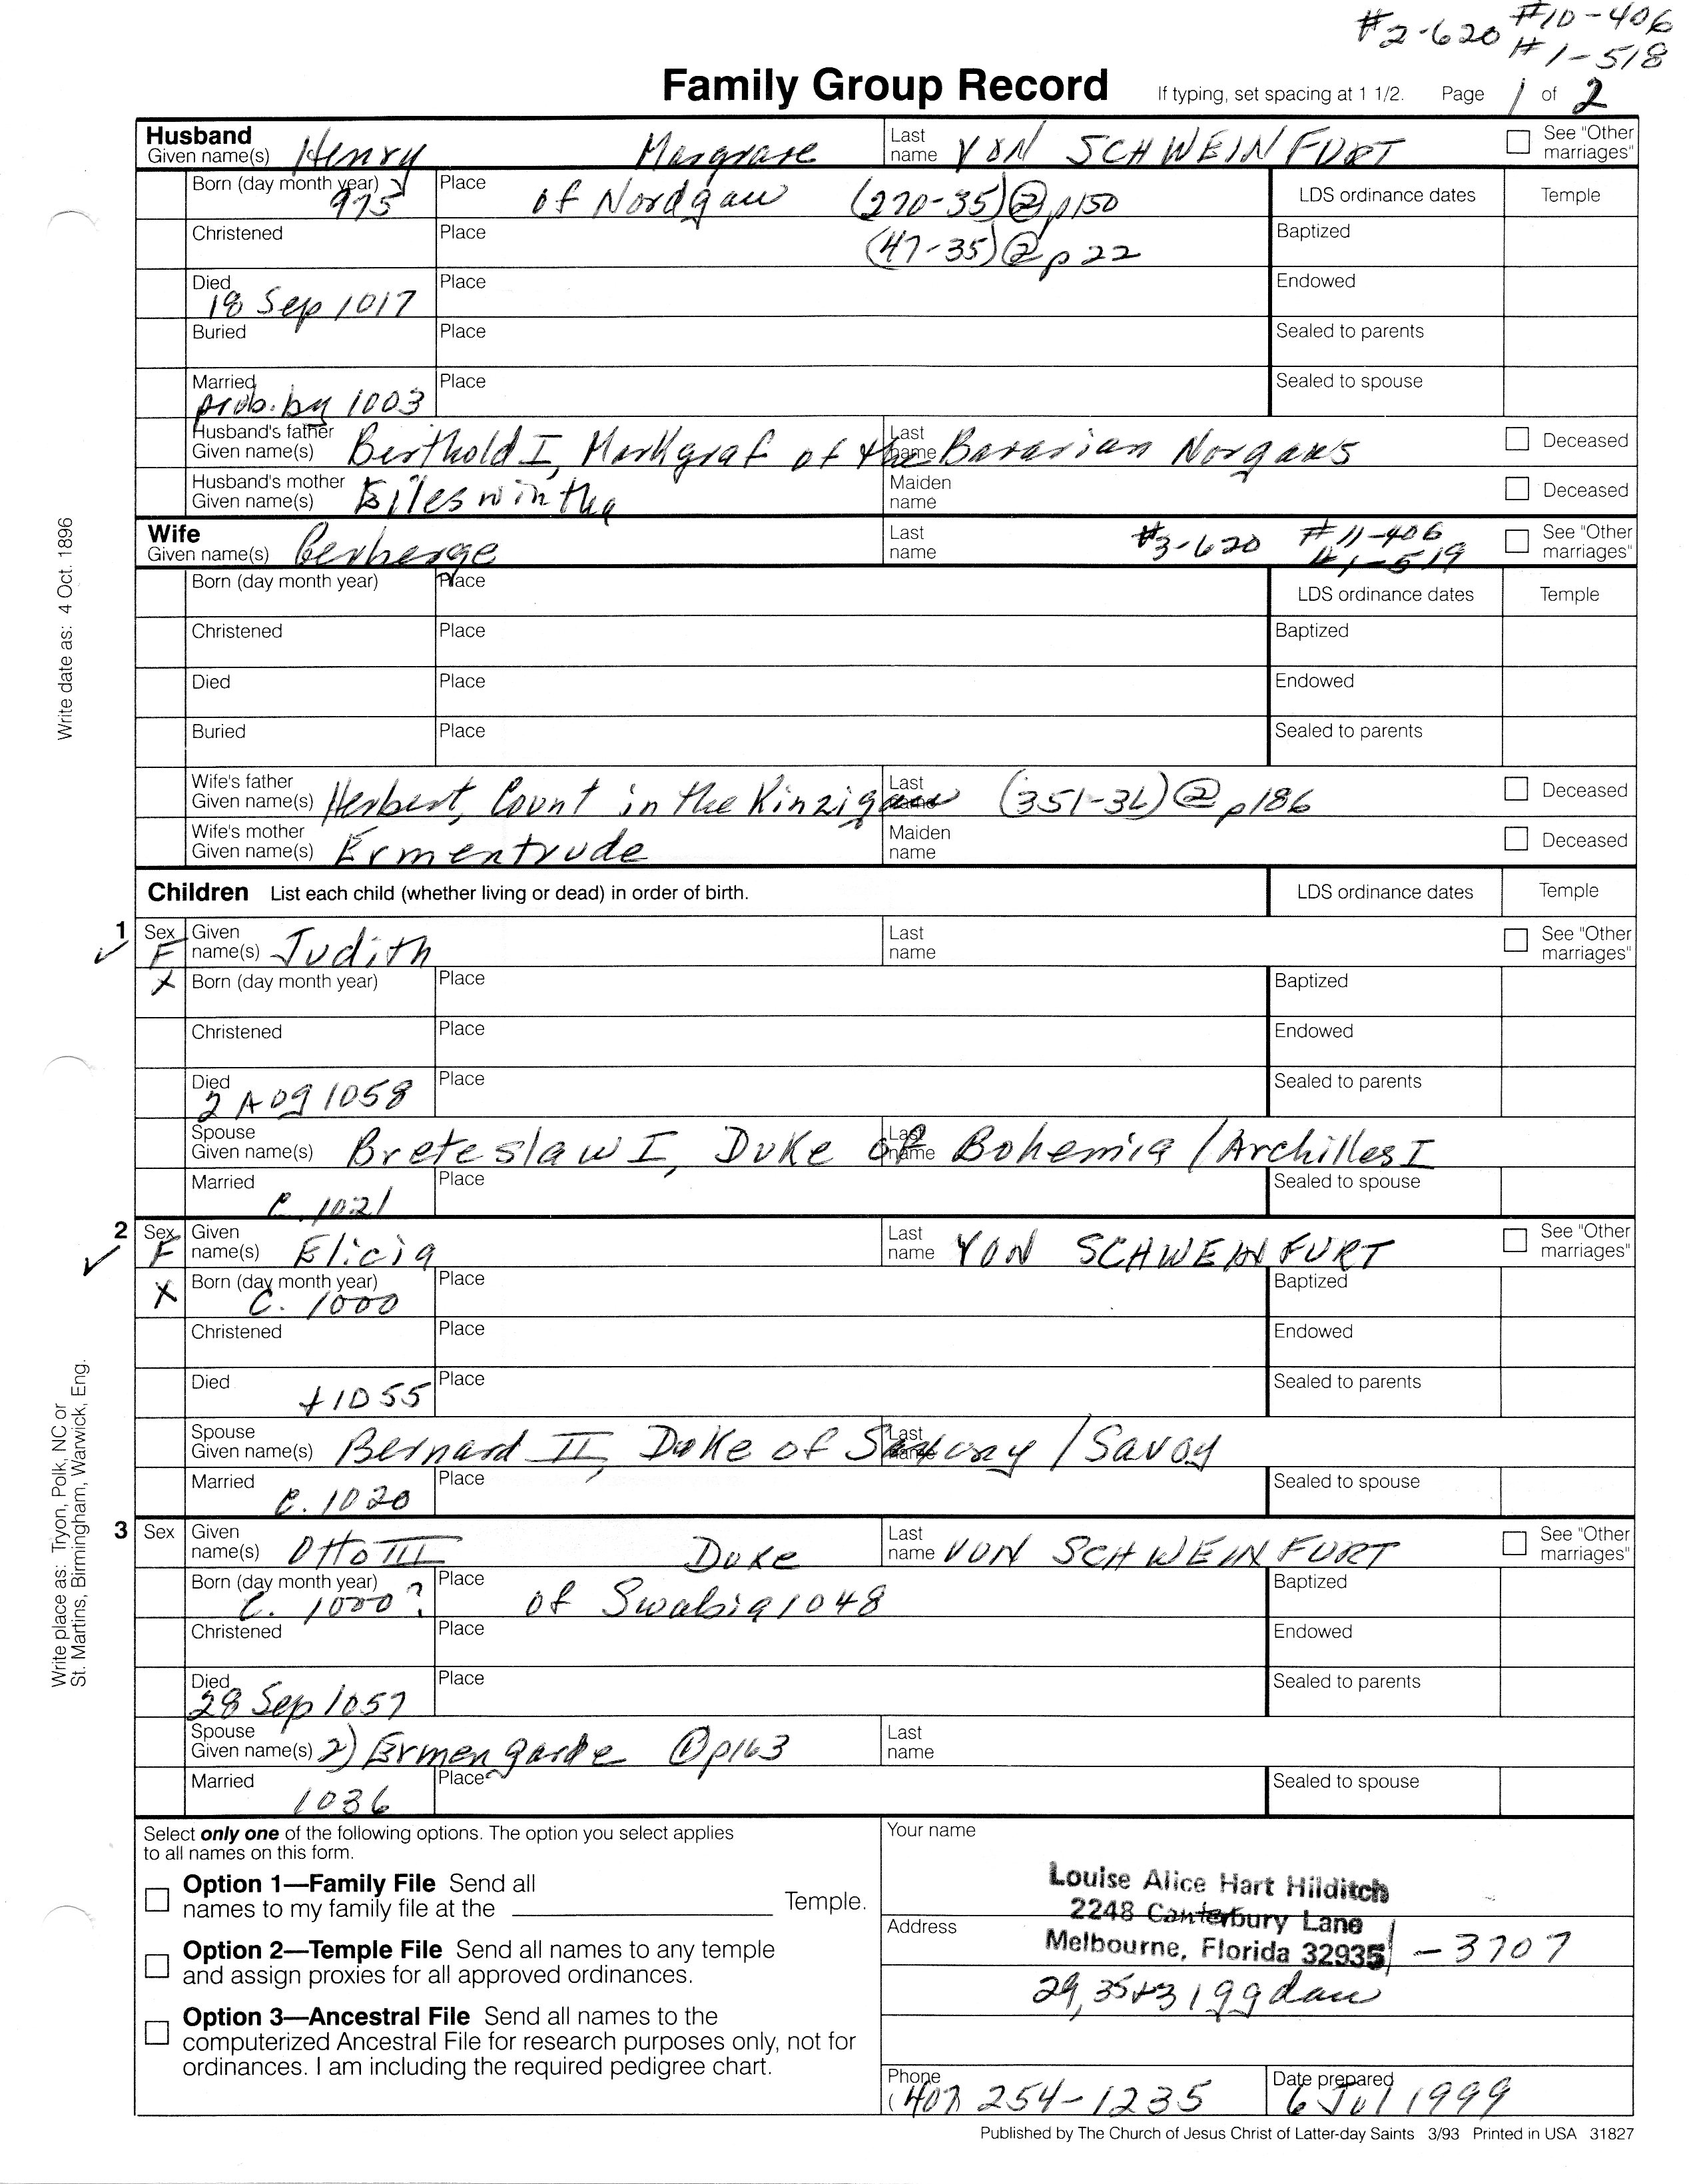 #2-620 #10-406
#1-518
Family Group Record If typing, set spacing at 1 1/2. Page 1 of 2
Husband
Given name(s) Henry Margrave Last name VON SCHWEINFURT See "Other marriages"
Born (day month year) 975 Place of Nordgau (270-35)@p150 LDS ordinance dates Temple
Christened Place (47-35)@p22 Baptized
Died 18 Sep 1017 Place Endowed
Buried Place Sealed to parents
Married prob. by 1003 Place Sealed to spouse
Husband's father Given name(s) Berthold I, Markgraf of the Last name Bavarian Norgaus Deceased
Husband's mother Given name(s) Eileswintha Maiden name Deceased
Wife
Given name(s) Gerberge Last name #3-620 #11-406 #1-519 See "Other marriages"
Born (day month year) Place LDS ordinance dates Temple
Christened Place Baptized
Died Place Endowed
Buried Place Sealed to parents
Wife's father Given name(s) Herbert, Count in the Kinziggau Last name (351-36)@p186 Deceased
Wife's mother Given name(s) Ermentrude Maiden name Deceased
Children List each child (whether living or dead) in order of birth. LDS ordinance dates Temple
1 Sex F Given name(s) Judith Last name See "Other marriages"
X Born (day month year) Place Baptized
Christened Place Endowed
Died 2 Aug 1058 Place Sealed to parents
Spouse Given name(s) Breteslaw I, Duke of Last name Bohemia / Archilles I
Married C. 1021 Place Sealed to spouse
2 Sex F Given name(s) Elicia Last name VON SCHWEINFURT See "Other marriages"
X Born (day month year) C. 1000 Place Baptized
Christened Place Endowed
Died +1055 Place Sealed to parents
Spouse Given name(s) Bernard II, Duke of Saxony Last name / Savoy
Married C. 1020 Place Sealed to spouse
3 Sex Given name(s) Otto III Duke Last name VON SCHWEINFURT See "Other marriages"
Born (day month year) C. 1000? Place of Swabia 1048 Baptized
Christened Place Endowed
Died 28 Sep 1057 Place Sealed to parents
Spouse Given name(s) 2) Ermengarde @p163 Last name
Married 1036 Place Sealed to spouse
Select only one of the following options. The option you select applies
to all names on this form.
Option 1—Family File Send all
names to my family file at the Temple.
Option 2—Temple File Send all names to any temple
and assign proxies for all approved ordinances.
Option 3—Ancestral File Send all names to the
computerized Ancestral File for research purposes only, not for
ordinances. I am including the required pedigree chart.
Your name
Louise Alice Hart Hilditch
2248 Canterbury Lane
Address
Melbourne, Florida 32935 -3707
29, 35+31 ggdau
Phone (407) 254-1235
Date prepared 6 Jul 1999
Published by The Church of Jesus Christ of Latter-day Saints 3/93 Printed in USA 31827
Write date as: 4 Oct. 1896
Write place as: Tryon, Polk, NC or
St. Martins, Birmingham, Warwick, Eng.